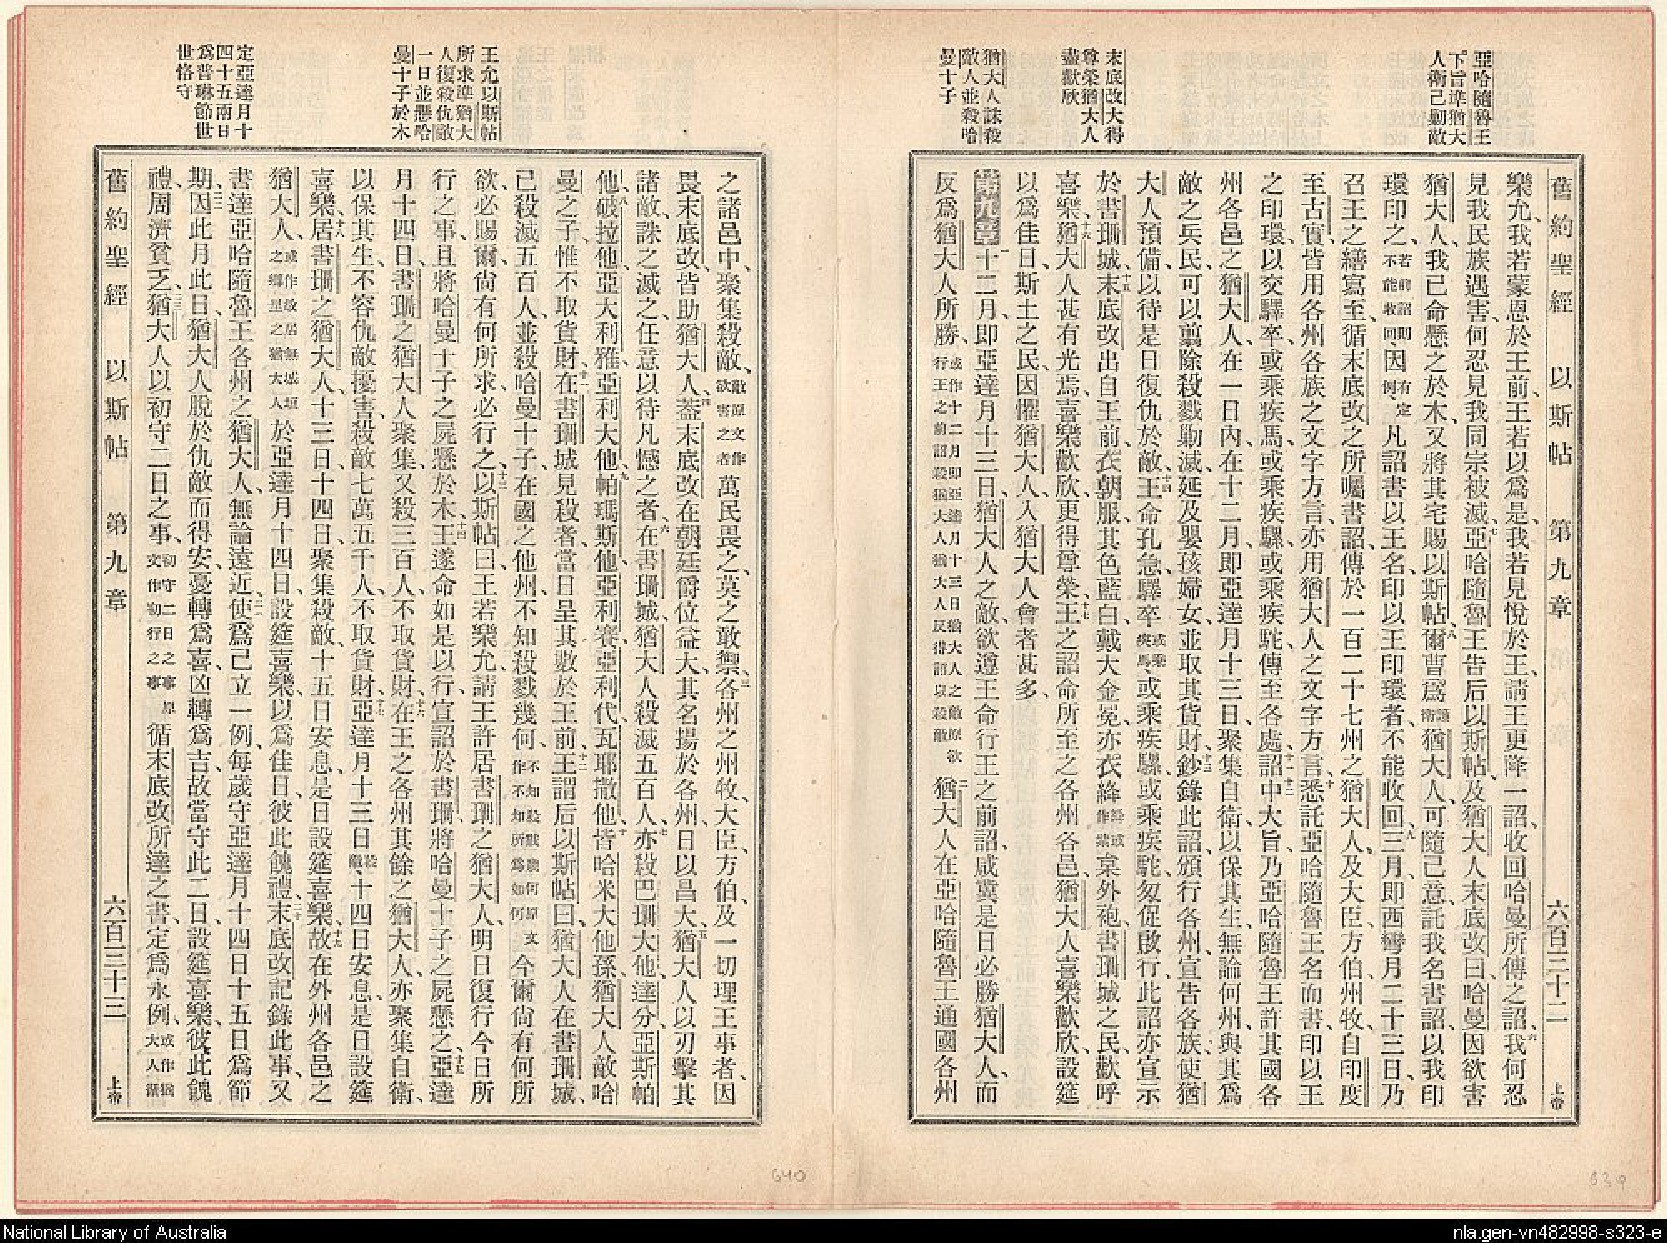 亞哈隨魯王
下旨準猶大
人衛己勦敵
末底改大得
尊榮猶大人
盡歡欣
猶大人誅殺
敵人並殺哈
曼十子
舊約聖經 以斯帖 第九章 六百三十二 上帝
樂允、我若蒙恩於王前、王若以爲是、我若見悅於王、請王更降一詔、收回哈曼所傳之詔、六我何忍
見我民族遇害、何忍見我同宗被滅、七亞哈隨魯王告后以斯帖及猶大人末底改曰、哈曼因欲害
猶大人、我已命懸之於木、又將其宅賜以斯帖、八爾曹爲護衛猶大人、可隨己意、託我名書詔、以我印
環印之、若前詔則不能收回因有定例、凡詔書以王名印以王印環者、不能收回、九三月、即西彎月二十三日、乃
召王之繕寫至、循末底改之所囑、書詔傳於一百二十七州之猶大人、及大臣、方伯、州牧、自印度
至古實、皆用各州各族之文字方言、亦用猶大人之文字方言、十悉託亞哈隨魯王名而書、印以王
之印環、以交驛卒、或乘疾馬、或乘疾騾、或乘疾駝、傳至各處、十一十二詔中大旨、乃亞哈隨魯王許其國各
州各邑之猶大人、在一日內、在十二月、即亞達月十三日、聚集自衛、以保其生、無論何州、與其爲
敵之兵民、可以翦除殺戮勦滅、延及嬰孩婦女、並取其貨財、十三鈔錄此詔、頒行各州、宣告各族、使猶
大人預備以待是日、復仇於敵、十四王命孔急、驛卒或乘疾馬、或乘疾騾、或乘疾駝、匆促啟行、此詔亦宣示
於書珊城、十五末底改出自王前、衣朝服、其色藍白、戴大金冕、亦衣絳或作紫色外袍、書珊城之民、歡呼
喜樂、十六猶大人甚有光焉、喜樂歡欣、更得尊榮、十七王之詔命所至之各州各邑、猶大人喜樂歡欣、設筵
以爲佳日、斯土之民、因懼猶大人、入猶大人會者甚多、
第九章十二月、即亞達月十三日、猶大人之敵、欲遵王命行王之前詔、咸冀是日必勝猶大人、而
反爲猶大人所勝、或作十二月即亞達月十三日猶大人之敵原欲行王之前詔殺猶大人猶大人反得前以殺敵二猶大人在亞哈隨魯王通國各州
王允以斯帖
所求準猶大
人復殺仇敵
一日並懸哈
曼十子於木
定亞達月十
四十五兩日
爲普珥節世
世恪守
之諸邑中、聚集殺敵、敵原文作欲害之者萬民畏之、莫之敢禦、三各州之州牧、大臣、方伯、及一切理王事者、因
畏末底改、皆助猶大人、四蓋末底改在朝廷爵位益大、其名揚於各州、日以昌大、五猶大人以刃擊其
諸敵、誅之滅之、任意以待凡憾之者、六在書珊城、猶大人殺滅五百人、七亦殺巴珊大他、達分、亞斯帕
他、八破拉他、亞大利雅、亞利大他、九帕瑪斯他、亞利賽、亞利代、瓦耶撒他、十皆哈米大他孫、猶大人敵哈
曼之子、惟不取貨財、十一在書珊城見殺者、當日呈其數於王前、十二王謂后以斯帖曰、猶大人在書珊城
已殺滅五百人、並殺哈曼十子、在國之他州、不知殺戮幾何、不知殺戮幾何原文作不知所爲如何今爾尙有何所
欲、必賜爾、尙有何所求、必行之、十三以斯帖曰、王若樂允、請王許居書珊之猶大人、明日復行今日所
行之事、且將哈曼十子之屍懸於木、十四王遂命如是以行、宣詔於書珊、將哈曼十子之屍懸之、十五亞達
月十四日、書珊之猶大人聚集、又殺三百人、不取貨財、十六在王之各州其餘之猶大人、亦聚集自衛、
以保其生、不容仇敵擾害、殺敵七萬五千人、不取貨財、十七亞達月十三日殺敵、十四日安息、是日設筵
喜樂、十八居書珊之猶大人、十三日十四日聚集殺敵、十五日安息、是日設筵喜樂、十九故在外州各邑之
猶大人、或作故居無城垣之鄉里之猶大人於亞達月十四日、設筵喜樂、以爲佳日、彼此餽禮、二十末底改記錄此事、又
書達亞哈隨魯王各州之猶大人、無論遠近、二一使爲己立一例、每歲守亞達月十四日十五日爲節
期、二二因此月此日、猶大人脫於仇敵而得安、憂轉爲喜、凶轉爲吉、故當守此二日、設筵喜樂、彼此餽
禮、周濟貧乏、二三猶大人以初守二日之事、初守二日之事原文作初行之事循末底改所達之書、定爲永例、或作猶大人循
舊約聖經 以斯帖 第九章 六百三十三 上帝
640
639
National Library of Australia
nla.gen-vn482998-s323-e